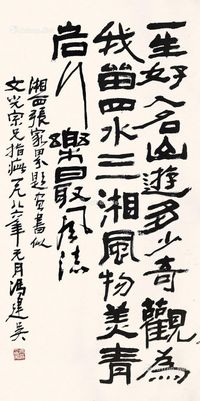 一生好入名山遊多少奇觀為
我留四水三湘風物美青
岩山樂最風流
湘西張家界題寄書似
文光宗兄指疵一九八六年元月馮建吴